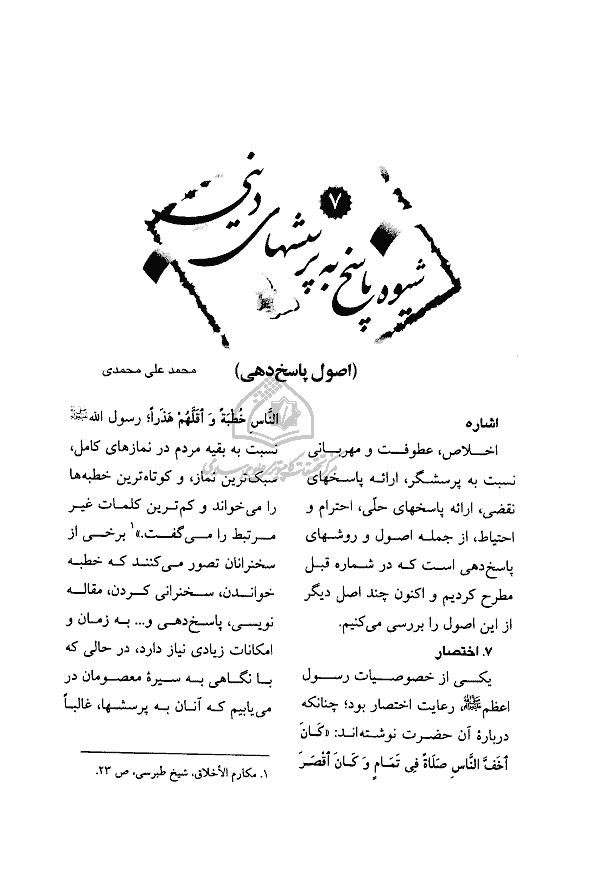 ۷
شیوه پاسخ به پرسشهای دینی
(اصول پاسخ‌دهی)
محمد علی محمدی
اشاره
اخلاص، عطوفت و مهربانی
نسبت به پرسشگر، ارائه پاسخهای
نقضی، ارائه پاسخهای حلّی، احترام و
احتیاط، از جمله اصول و روشهای
پاسخ‌دهی است که در شماره قبل
مطرح کردیم و اکنون چند اصل دیگر
از این اصول را بررسی می‌کنیم.
۷. اختصار
یکی از خصوصیات رسول
اعظم ﷺ، رعایت اختصار بود؛ چنانکه
دربارهٔ آن حضرت نوشته‌اند: «کَانَ
أَخَفَّ النَّاسِ صَلَاةً فِی تَمَامٍ وَ کَانَ أَقْصَرَ
النَّاسِ خُطْبَةً وَ أَقَلَّهُمْ هَذَراً؛ رسول الله ﷺ
نسبت به بقیه مردم در نمازهای کامل،
سبک‌ترین نماز، و کوتاه‌ترین خطبه‌ها
را می‌خواند و کم‌ترین کلمات غیر
مرتبط را می‌گفت.»۱ برخی از
سخنرانان تصور می‌کنند که خطبه
خواندن، سخنرانی کردن، مقاله
نویسی، پاسخ‌دهی و... به زمان و
امکانات زیادی نیاز دارد، در حالی که
با نگاهی به سیرهٔ معصومان در
می‌یابیم که آنان به پرسشها، غالباً
۱. مکارم الأخلاق، شیخ طبرسی، ص ۲۳.